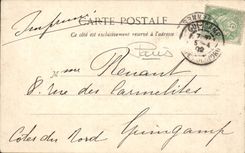 Imprimé
CARTE POSTALE
Ce côté est exclusivement réservé à l'adresse
Paris
Renant
8 rue des Carmelites
Guingamp
Côtes du Nord